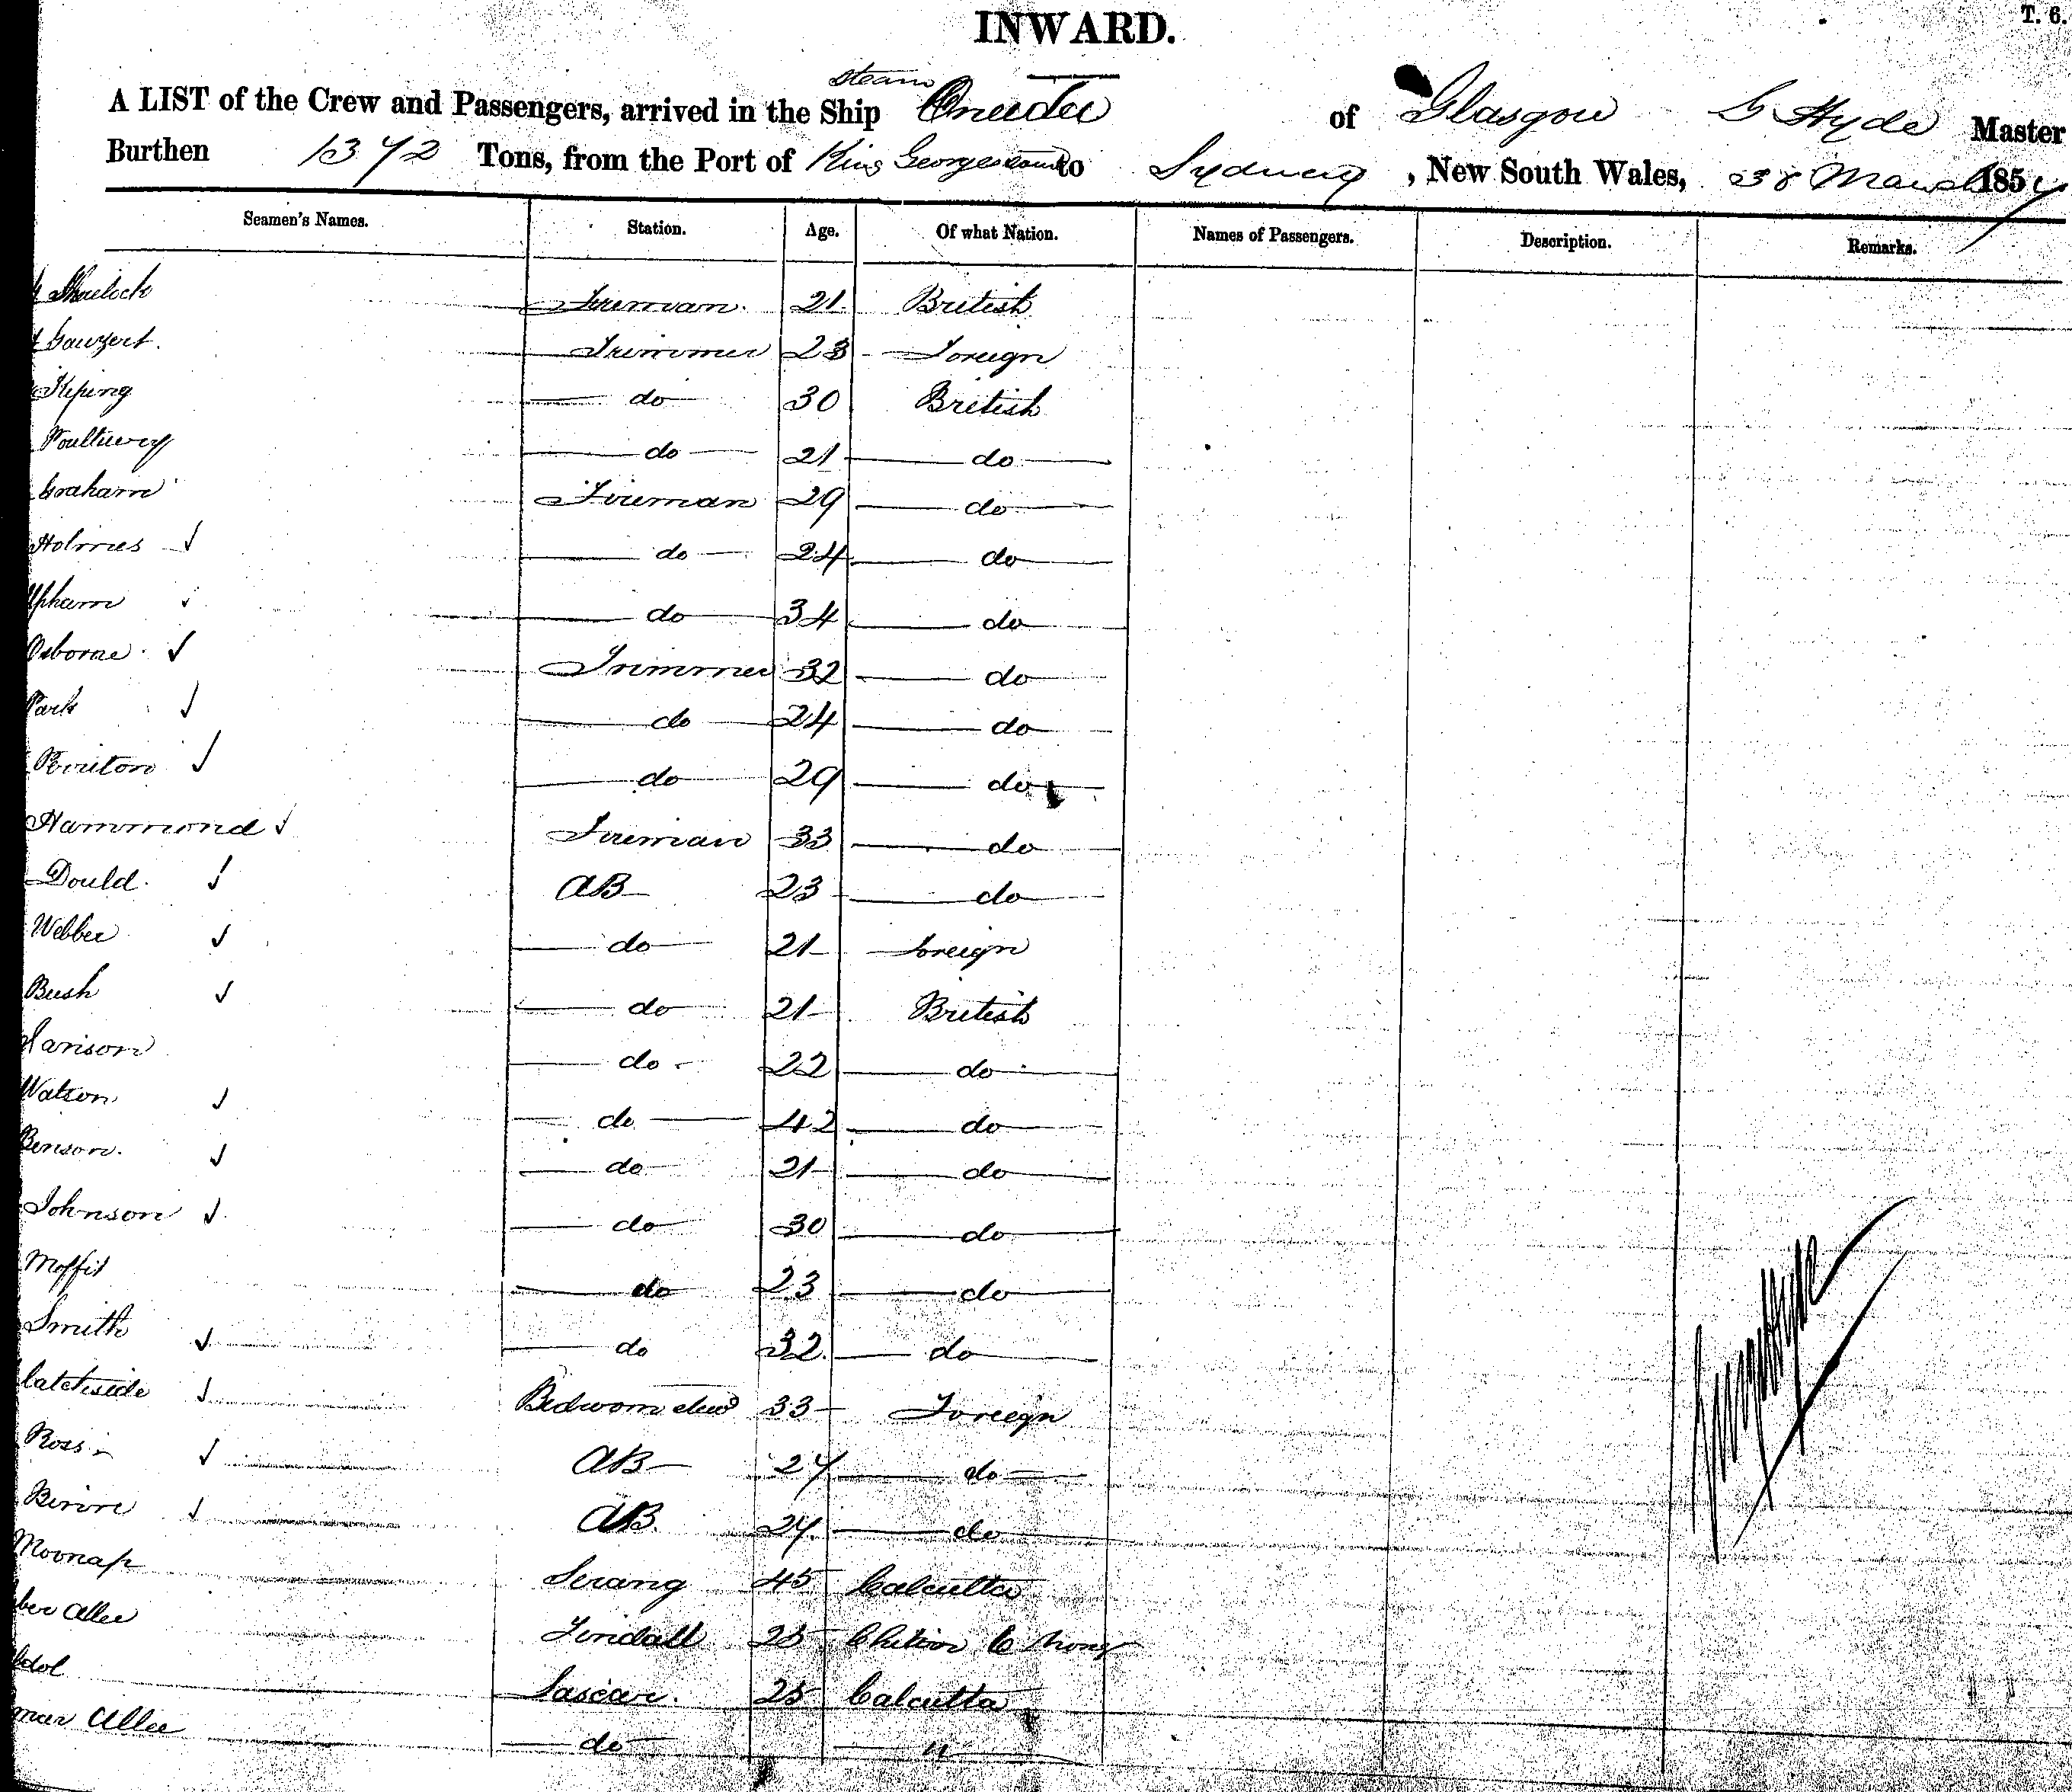 T. 6.
INWARD.
steam
A LIST of the Crew and Passengers, arrived in the Ship Oneida of Glasgow G Hyde Master
Burthen 1372 Tons, from the Port of King Georges sound to Sydney, New South Wales, March 185
Seamen's Names. Station. Age. Of what Nation. Names of Passengers. Description. Remarks.
Fireman. 21 British
Trimmer 23 Foreign
do 30 British
Poultney do 21 do
Graham Fireman 29 do
Holmes do 24 do
Upham do 34 do
Osborne Trimmer 32 do
Park do 24 do
do 29 do
Hammond Fireman 33 do
Dould. AB 23 do
Webber do 21 Foreign
Bush do 21 British
do 22 do
Watson do 42 do
Benson. do 21 do
Johnson do 30 do
Moffit do 23 do
Smith do 32 do
Catchside Bedroom stewd 33 Foreign
Ross AB 24 do
AB. 24 do
Moonap Serang 45 Calcutta
ber Allee Tindall 25
Lascar. 25 Calcutta
mar Allee do "